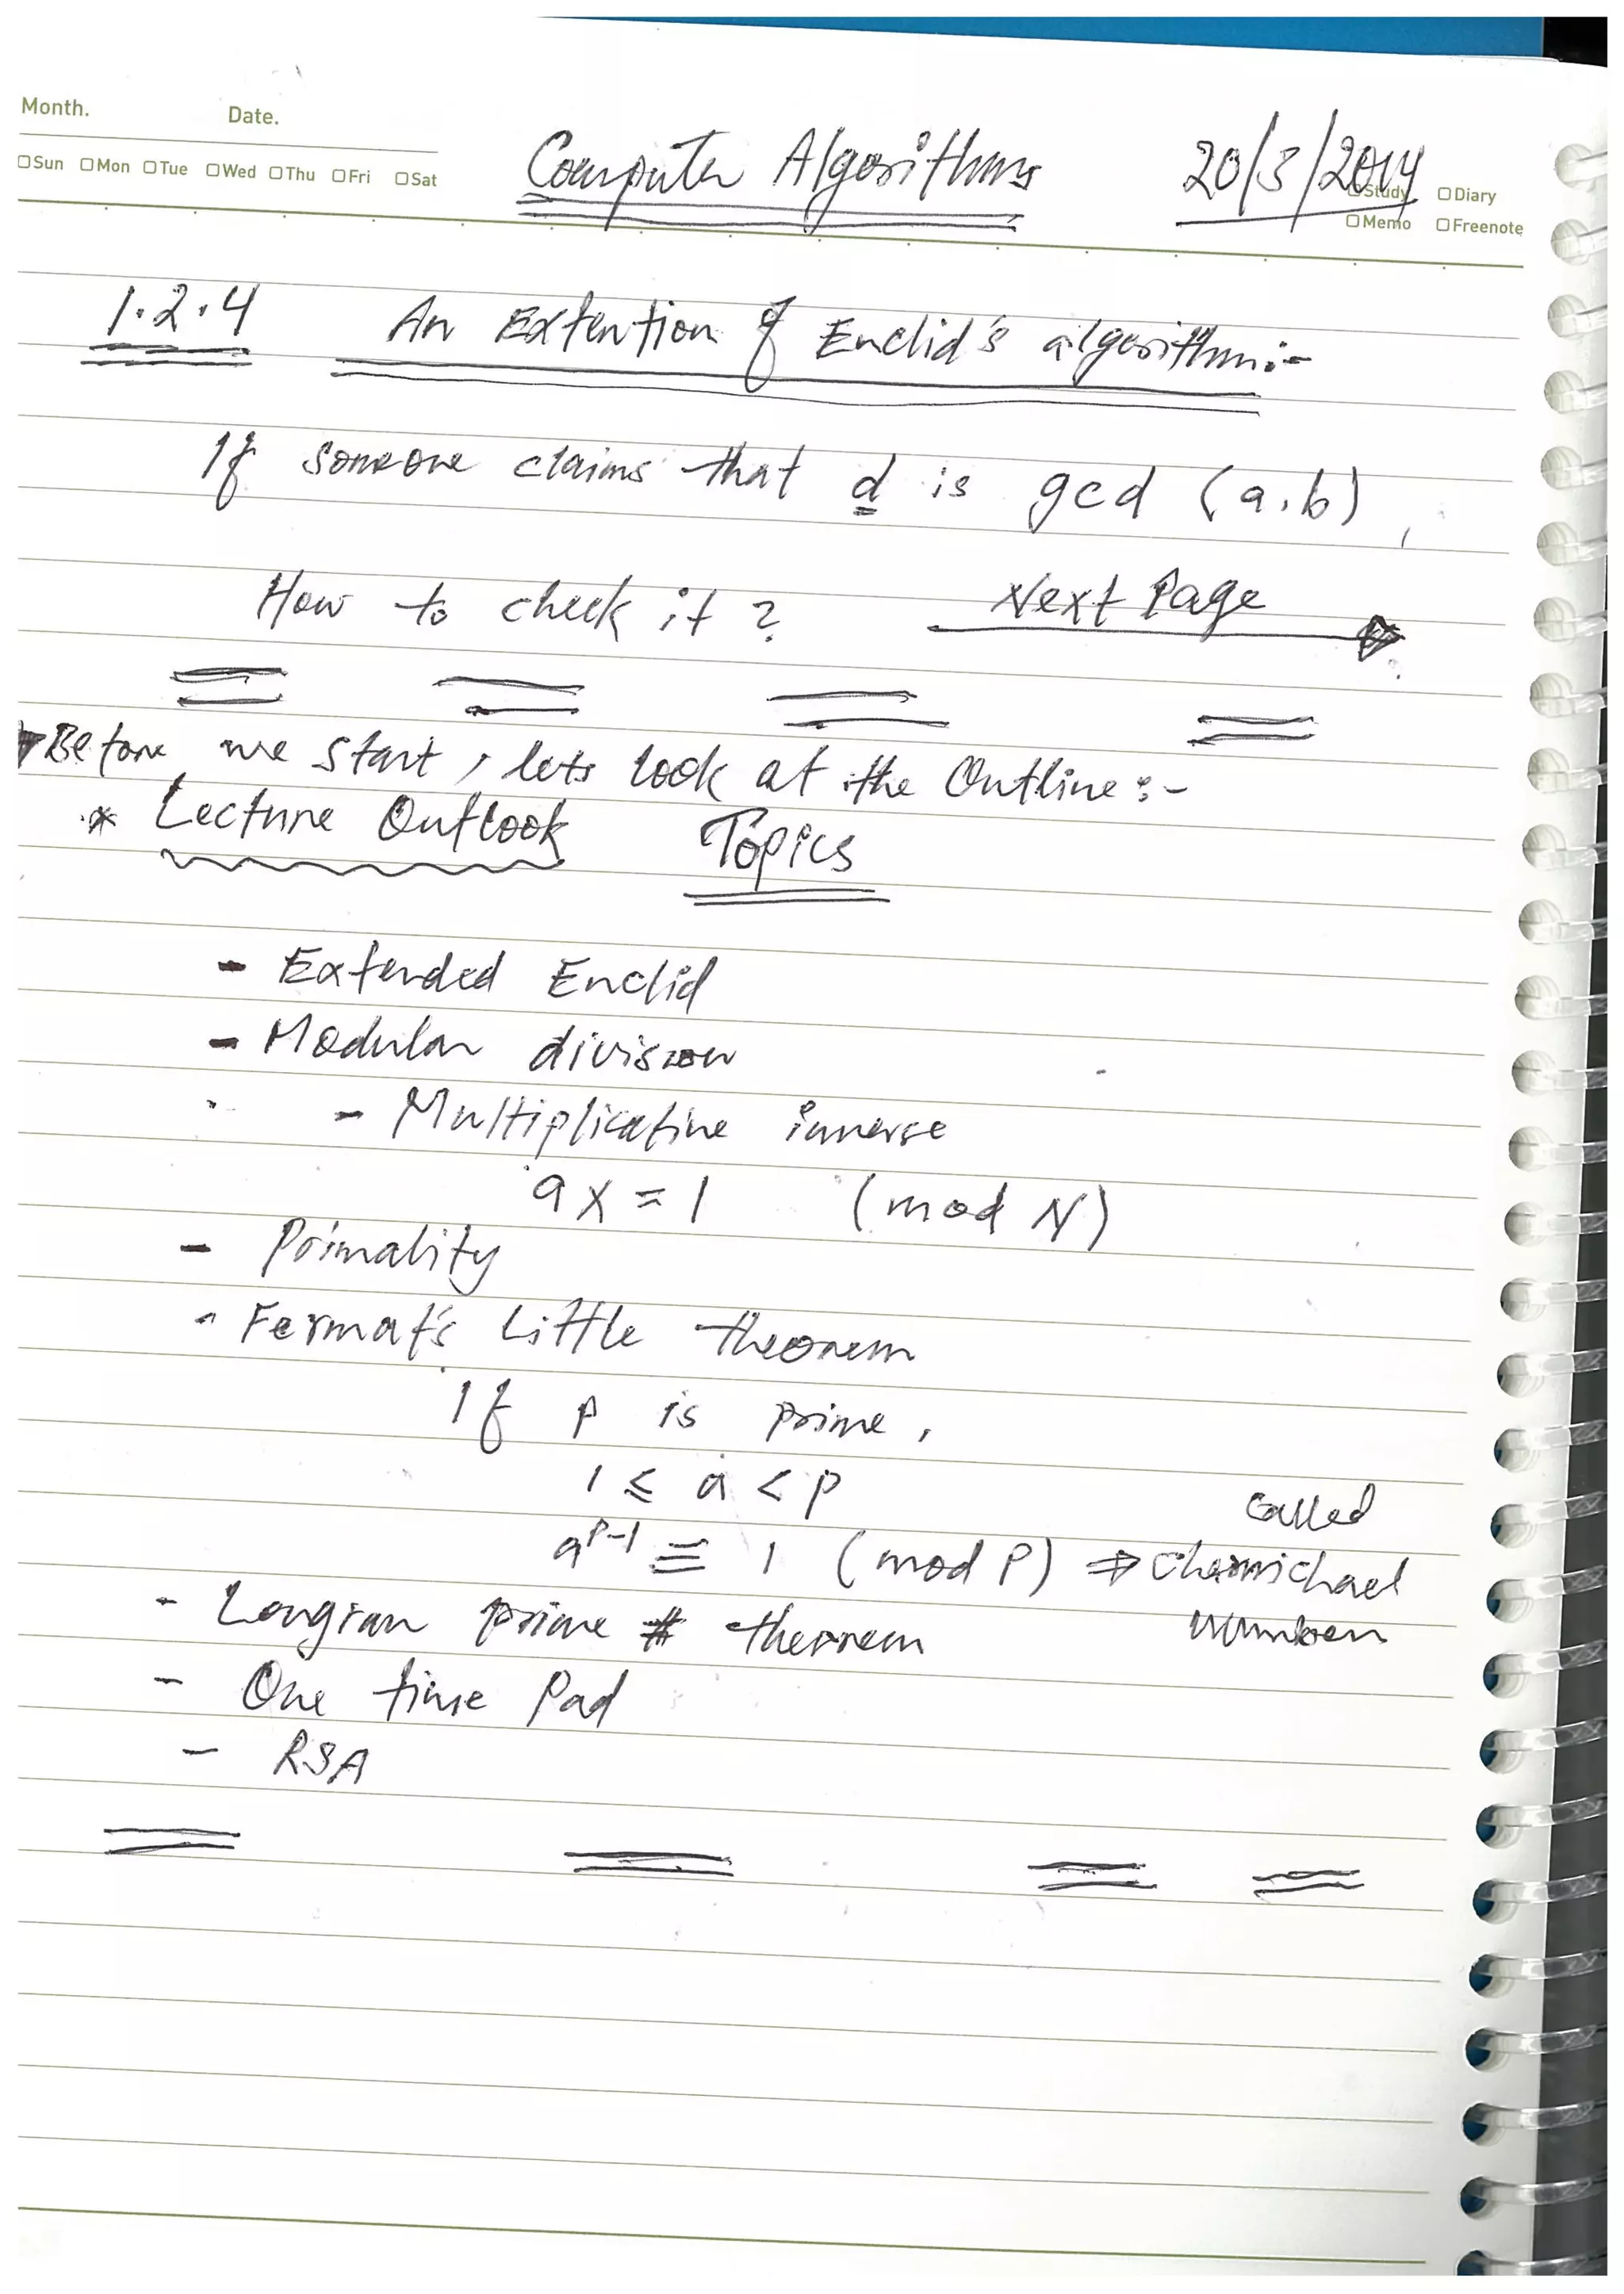 Month. Date.
□Sun □Mon □Tue □Wed □Thu □Fri □Sat
Computer Algorithms 20/3/2014
□Study □Diary
□Memo □Freenote
1.2.4 An Extention of Euclid's algorithm:-
If someone claims that d is gcd (a,b),
How to check it? Next Page
Before we start, lets look at the Outline:-
* Lecture Outlook Topics
- Extended Euclid
- Modular division
- Multiplicative inverse
ax = 1 (mod N)
- Primality
- Fermat's Little theorem
If p is prime,
1 ≤ a < p
called
a^{p-1} ≡ 1 (mod P) ⇒ Charmichael
number
- prime # theorem
- One time Pad
- RSA